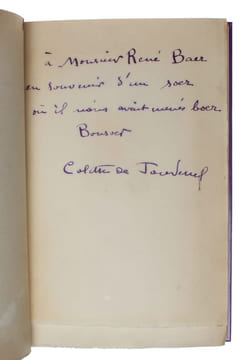 à Monsieur René Baer
en souvenir d'un soir
où il nous avait menés boer.
Bonsoer
Colette de Jouvenel